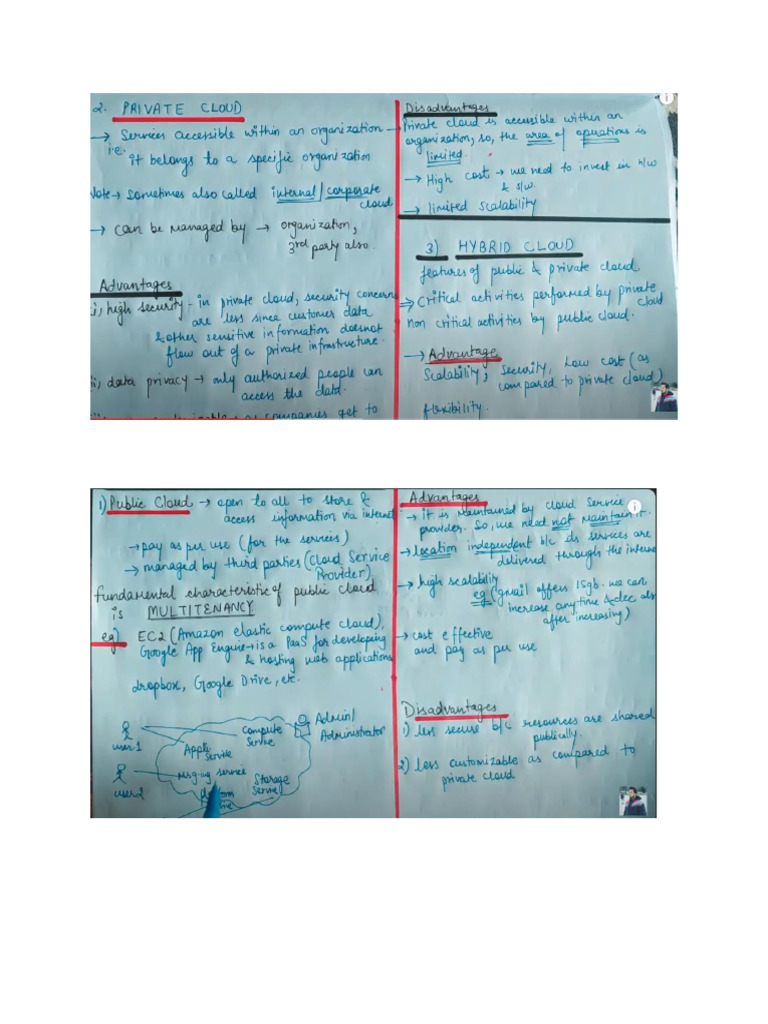 2. PRIVATE CLOUD
→ Services accessible within an organization
i.e. it belongs to a specific organization
Note → sometimes also called internal/corporate
cloud
→ can be managed by → organization,
3rd party also.
Advantages
i, high security - in private cloud, security concerns
are less since customer data
& other sensitive information doesnot
flow out of a private infrastructure.
ii, data privacy → only authorized people can
access the data.
as companies get to
Disadvantages
→ Private cloud is accessible within an
organization, so, the area of operations is
limited.
→ High cost → we need to invest in h/w
& s/w.
→ limited scalability
3) HYBRID CLOUD
features of public & private cloud
⇒ Critical activities performed by private
cloud
non critical activities by public cloud.
→ Advantage
Scalability, security, low cost (as
compared to private cloud)
flexibility.
1) Public Cloud → open to all to store &
access information via internet
→ pay as per use (for the services)
→ managed by third parties (Cloud Service
Provider)
fundamental characteristic of public cloud
is MULTITENANCY
eg) EC2 (Amazon elastic compute cloud),
Google App Engine → is a PaaS for developing
& hosting web applications
dropbox, Google Drive, etc.
user1
Compute
Service
Admin/
Administrator
Service
user2
msg-ing service
Storage
Service
Advantages
→ it is maintained by cloud service
provider. So, we need not maintain it.
→ location independent b/c its services are
delivered through the interne
→ high scalability
eg (gmail offers 15gb. we can
increase any time & dec als
after increasing)
→ cost effective
and pay as per use
Disadvantages
1) less secure b/c resources are shared
publically.
2) less customizable as compared to
private cloud